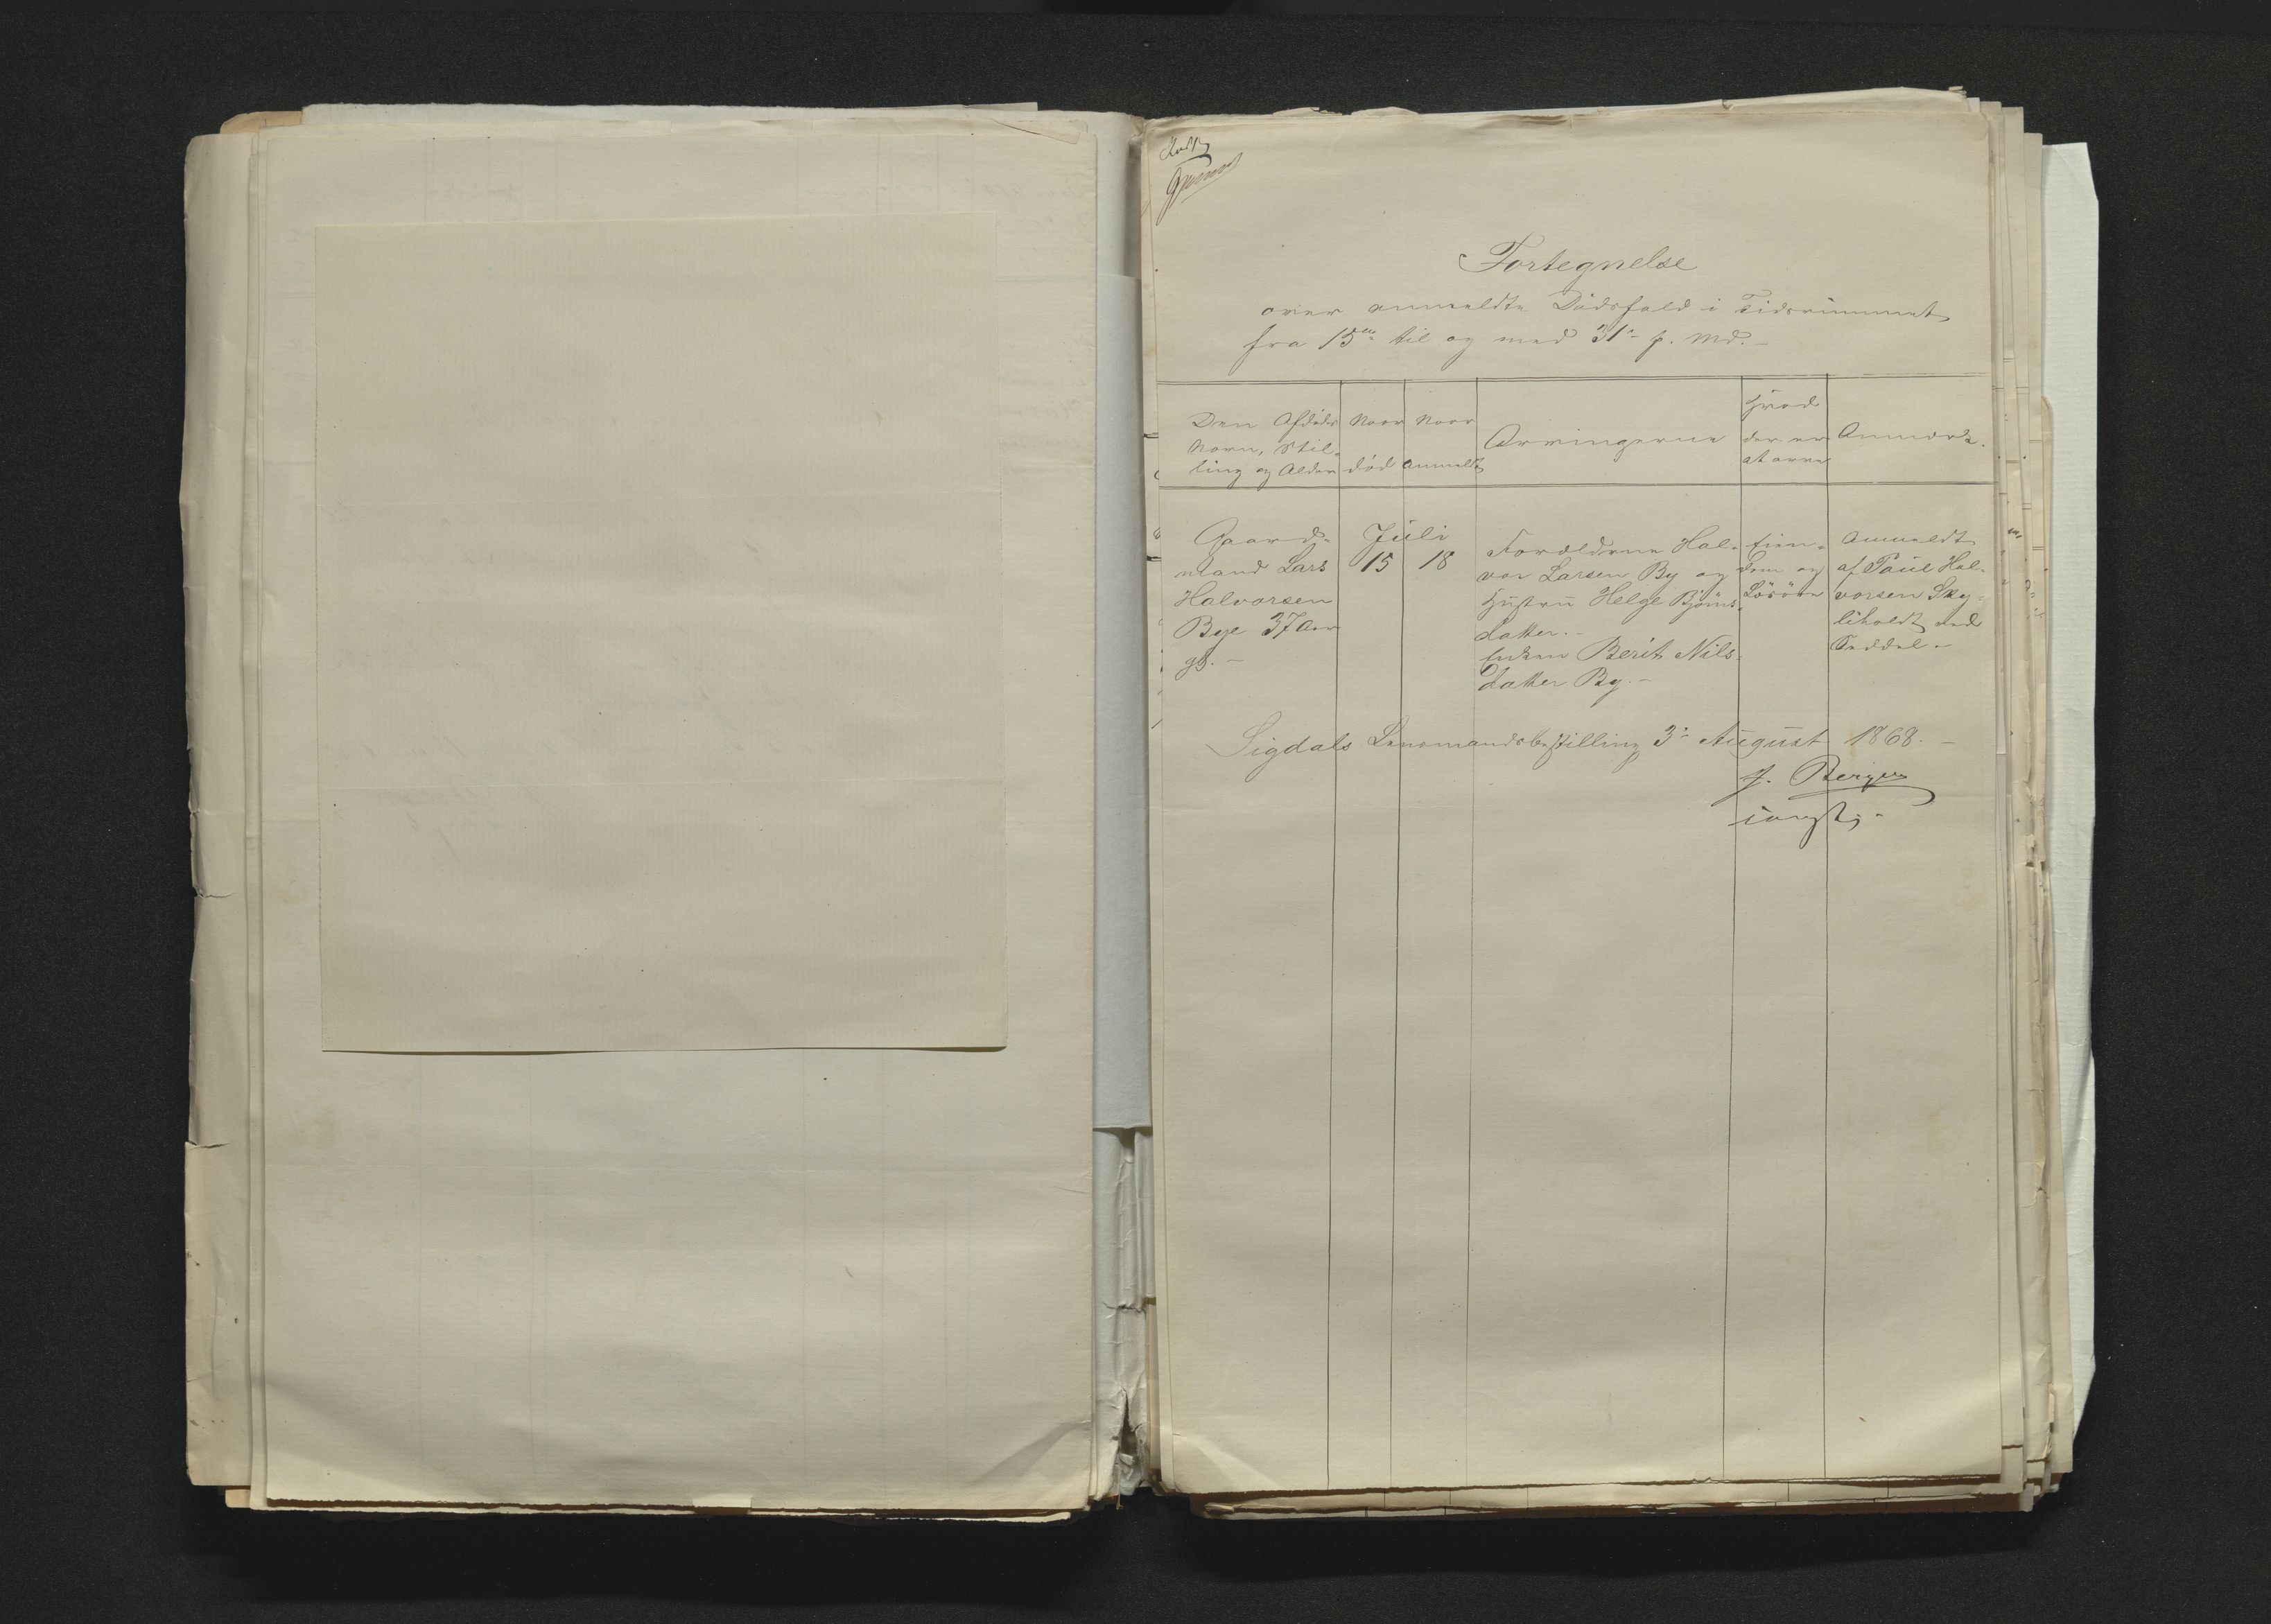 Fortegnelse
over anmeldte Dødsfald i Tidsrummet
fra 15de til og med 31- p. Md. -
Den Afdødes
Navn, Stil-
ling og Alder
Naar
død
Naar
anmeldt
Arvingerne
Hvad
der er
at arve
Anmærk.
Gaard-
mand Lars
Halvorsen
Bye 37 Aar
gl. -
Juli
15 18
Forældrene Hal-
vor Larsen By og
Hustru Helge Bjørns-
datter. -
Enken Berit Nils-
datter By. -
Eien-
dom og
Løsøre
Anmeldt
af Paul Hal-
vorsen Sky-
liholdt ved
Seddel. -
Sigdals Lensmandsbestilling 3- August 1868. -
J. Bergan